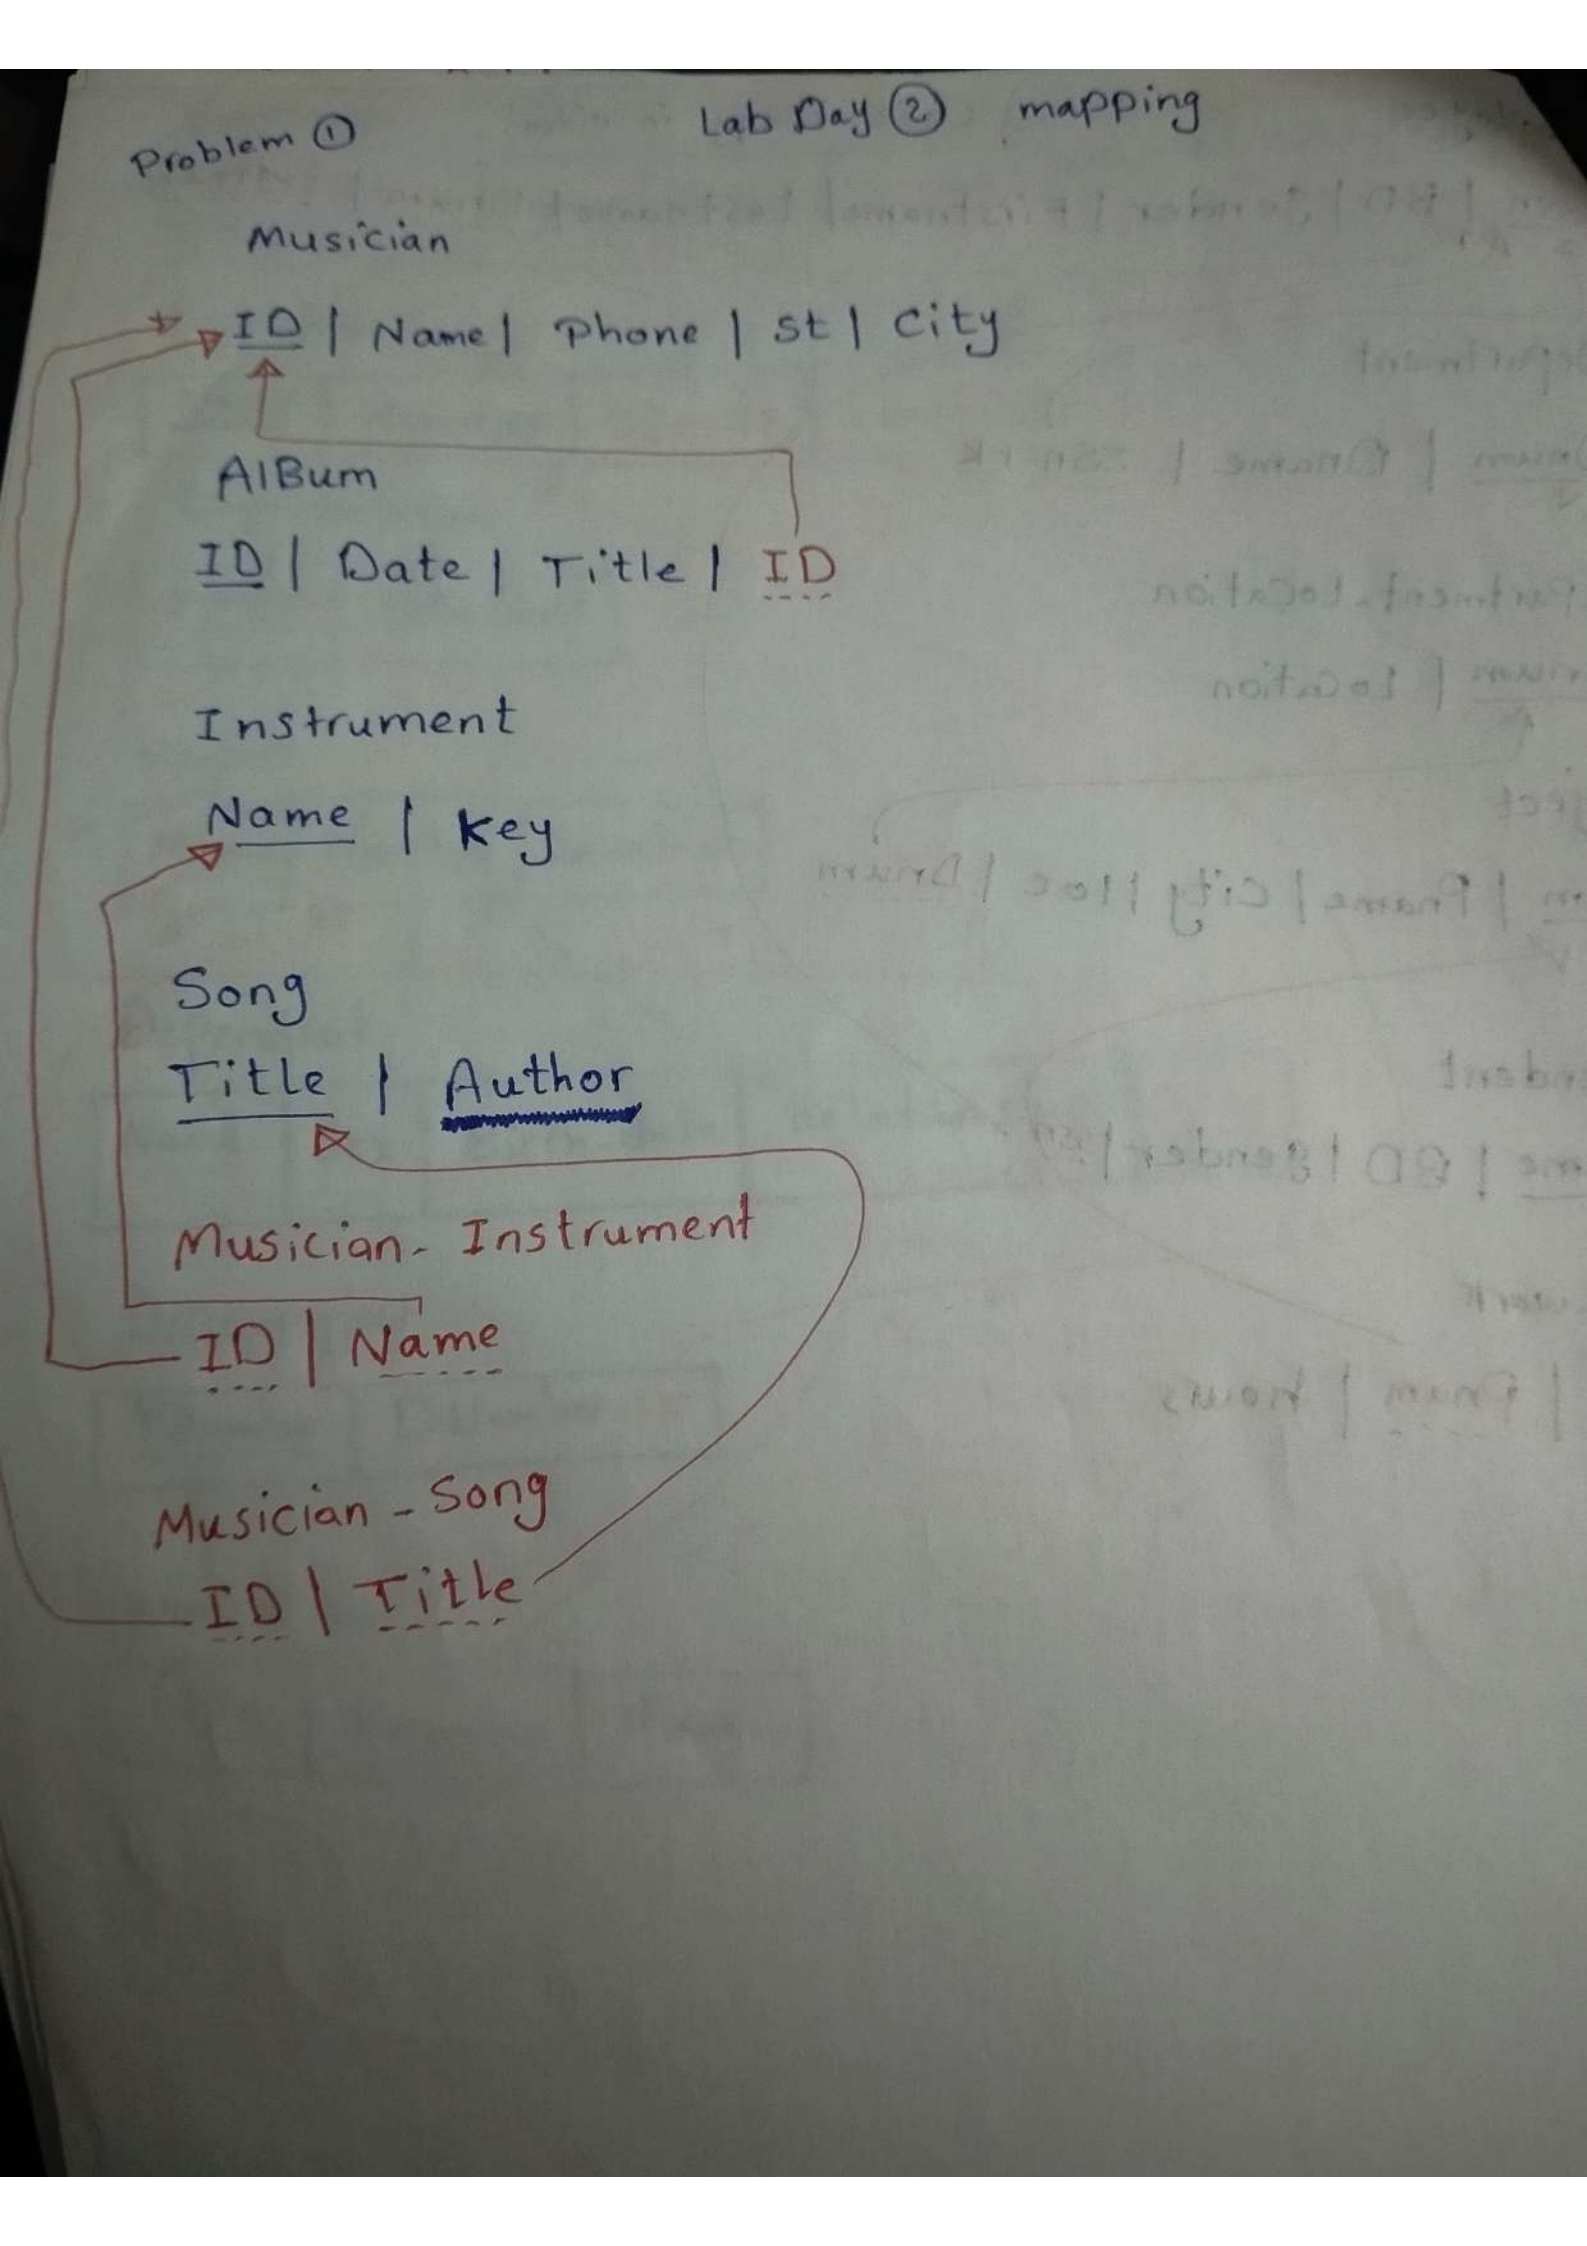 Problem ① Lab Day ② mapping
Musician
ID | Name | Phone | St | City
AlBum
ID | Date | Title | ID
Instrument
Name | Key
Song
Title | Author
Musician- Instrument
ID | Name
Musician - Song
ID | Title